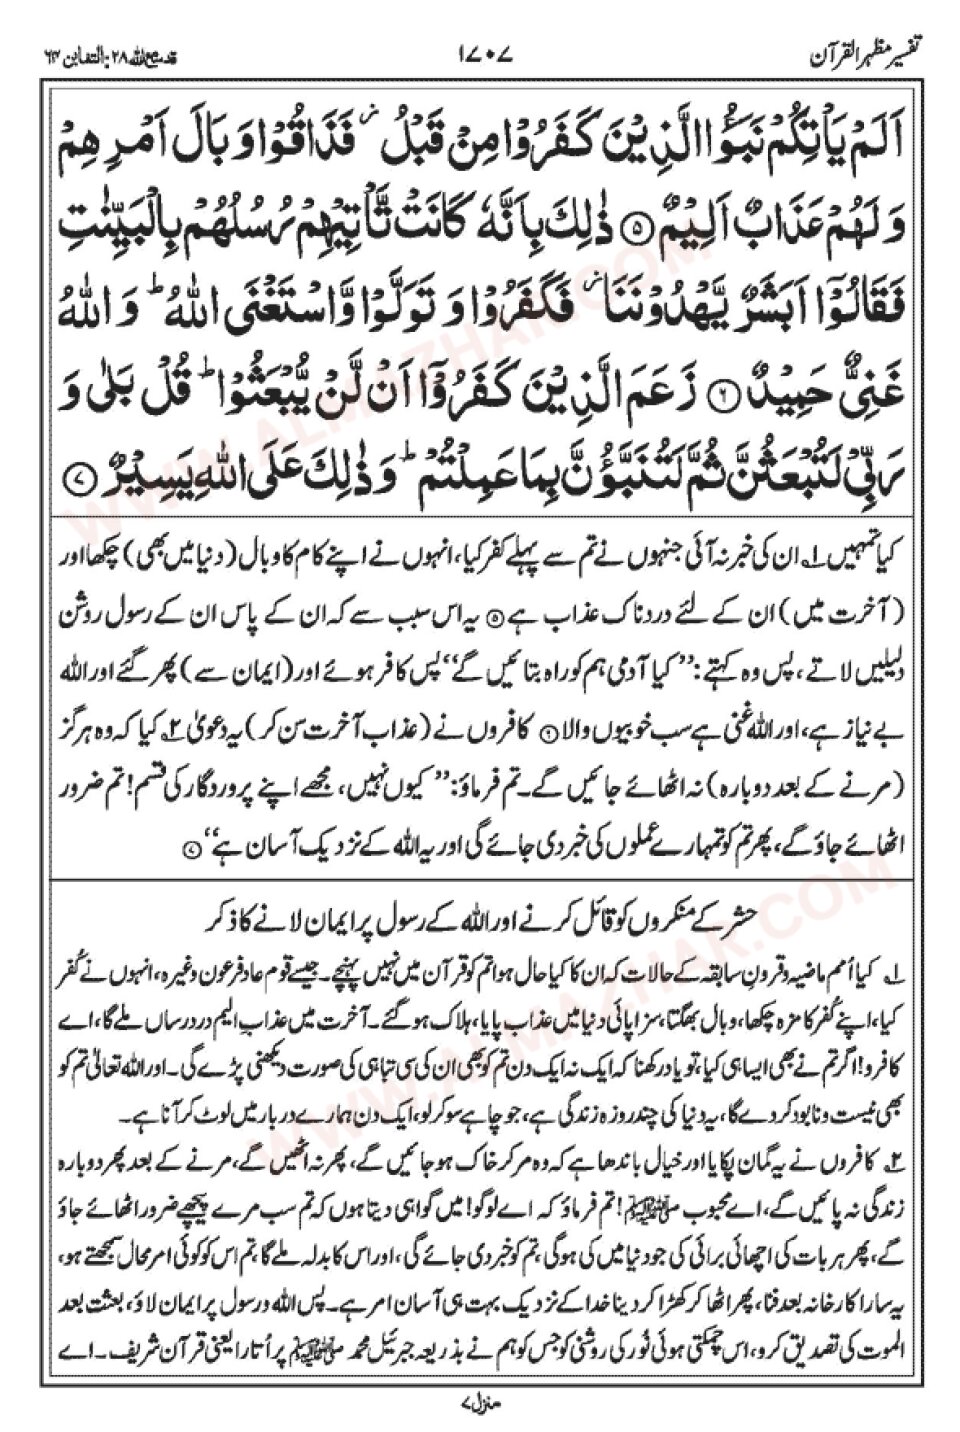 تفسیر مظہرالقرآن ۱۷۰۷ قد سمع اللہ ۲۸: التغابن ۶۴
اَلَمْ يَاْتِكُمْ نَبَؤُا الَّذِيْنَ كَفَرُوْا مِنْ قَبْلُ ۫ فَذَاقُوْا وَبَالَ اَمْرِهِمْ
وَلَهُمْ عَذَابٌ اَلِيْمٌ ۝۵ ذٰلِكَ بِاَنَّهٗ كَانَتْ تَّاْتِيْهِمْ رُسُلُهُمْ بِالْبَيِّنٰتِ
فَقَالُوْۤا اَبَشَرٌ يَّهْدُوْنَنَا ۫ فَكَفَرُوْا وَتَوَلَّوْا وَّاسْتَغْنَى اللّٰهُ ؕ وَاللّٰهُ
غَنِيٌّ حَمِيْدٌ ۝۶ زَعَمَ الَّذِيْنَ كَفَرُوْۤا اَنْ لَّنْ يُّبْعَثُوْا ؕ قُلْ بَلٰى وَ
رَبِّيْ لَتُبْعَثُنَّ ثُمَّ لَتُنَبَّؤُنَّ بِمَا عَمِلْتُمْ ؕ وَذٰلِكَ عَلَى اللّٰهِ يَسِيْرٌ ۝۷
کیا تمہیں ۱؎ ان کی خبر نہ آئی جنہوں نے تم سے پہلے کفر کیا، انہوں نے اپنے کام کا وبال (دنیا میں بھی) چکھا اور
(آخرت میں) ان کے لئے دردناک عذاب ہے ۝۵ یہ اس سبب سے کہ ان کے پاس ان کے رسول روشن
دلیلیں لاتے، پس وہ کہتے: ’’کیا آدمی ہم کو راہ بتائیں گے‘‘ پس کافر ہوئے اور (ایمان سے) پھر گئے اور اللہ
بے نیاز ہے، اور اللہ غنی ہے سب خوبیوں والا ۝۶ کافروں نے (عذاب آخرت سن کر) یہ دعویٰ ۲؎ کیا کہ وہ ہرگز
(مرنے کے بعد دوبارہ) نہ اٹھائے جائیں گے۔ تم فرماؤ: ’’کیوں نہیں، مجھے اپنے پروردگار کی قسم! تم ضرور
اٹھائے جاؤ گے، پھر تم کو تمہارے عملوں کی خبر دی جائے گی اور یہ اللہ کے نزدیک آسان ہے‘‘ ۝۷
حشر کے منکروں کو قائل کرنے اور اللہ کے رسول پر ایمان لانے کا ذکر
۱؎ کیا اُمم ماضیہ و قرون سابقہ کے حالات کہ ان کا کیا حال ہوا تم کو قرآن میں نہیں پہنچے۔ جیسے قوم عاد فرعون وغیرہ، انہوں نے کُفر
کیا، اپنے کُفر کا مزہ چکھا، وبال بھگتا، سزا پائی دنیا میں عذاب پایا، ہلاک ہو گئے۔ آخرت میں عذابِ الیم درد رساں ملے گا، اے
کافرو! اگر تم نے بھی ایسا ہی کیا، تو یاد رکھنا کہ ایک نہ ایک دن تم کو بھی ان کی سی تباہی کی صورت دیکھنی پڑے گی۔ اور اللہ تعالیٰ تم کو
بھی نیست و نابود کر دے گا، یہ دنیا کی چند روزہ زندگی ہے، جو چاہے سو کر لو، ایک دن ہمارے دربار میں لوٹ کر آنا ہے۔
۲؎ کافروں نے یہ گمان پکایا اور خیال باندھا ہے کہ وہ مر کر خاک ہو جائیں گے، پھر نہ اٹھیں گے، مرنے کے بعد پھر دوبارہ
زندگی نہ پائیں گے، اے محبوب ﷺ! تم فرماؤ کہ اے لوگو! میں گواہی دیتا ہوں کہ تم سب مرے پیچھے ضرور اٹھائے جاؤ
گے، پھر ہر بات کی اچھائی برائی کی جو دنیا میں کی ہو گی، تم کو خبر دی جائے گی، اور اس کا بدلہ ملے گا، تم اس کو کوئی امر محال سمجھتے ہو،
یہ سارا کارخانہ بعد فنا، پھر اٹھا کر کھڑا کر دینا خدا کے نزدیک بہت ہی آسان امر ہے۔ پس اللہ و رسول پر ایمان لاؤ، بعثت بعد
الموت کی تصدیق کرو، اس چمکتی ہوئی نُور کی روشنی کو جس کو ہم نے بذریعہ جبرئیل محمد ﷺ پر اُتارا یعنی قرآن شریف۔ اے
منزل ۷
WWW.ALMAZHAR.COM
WWW.ALMAZHAR.COM